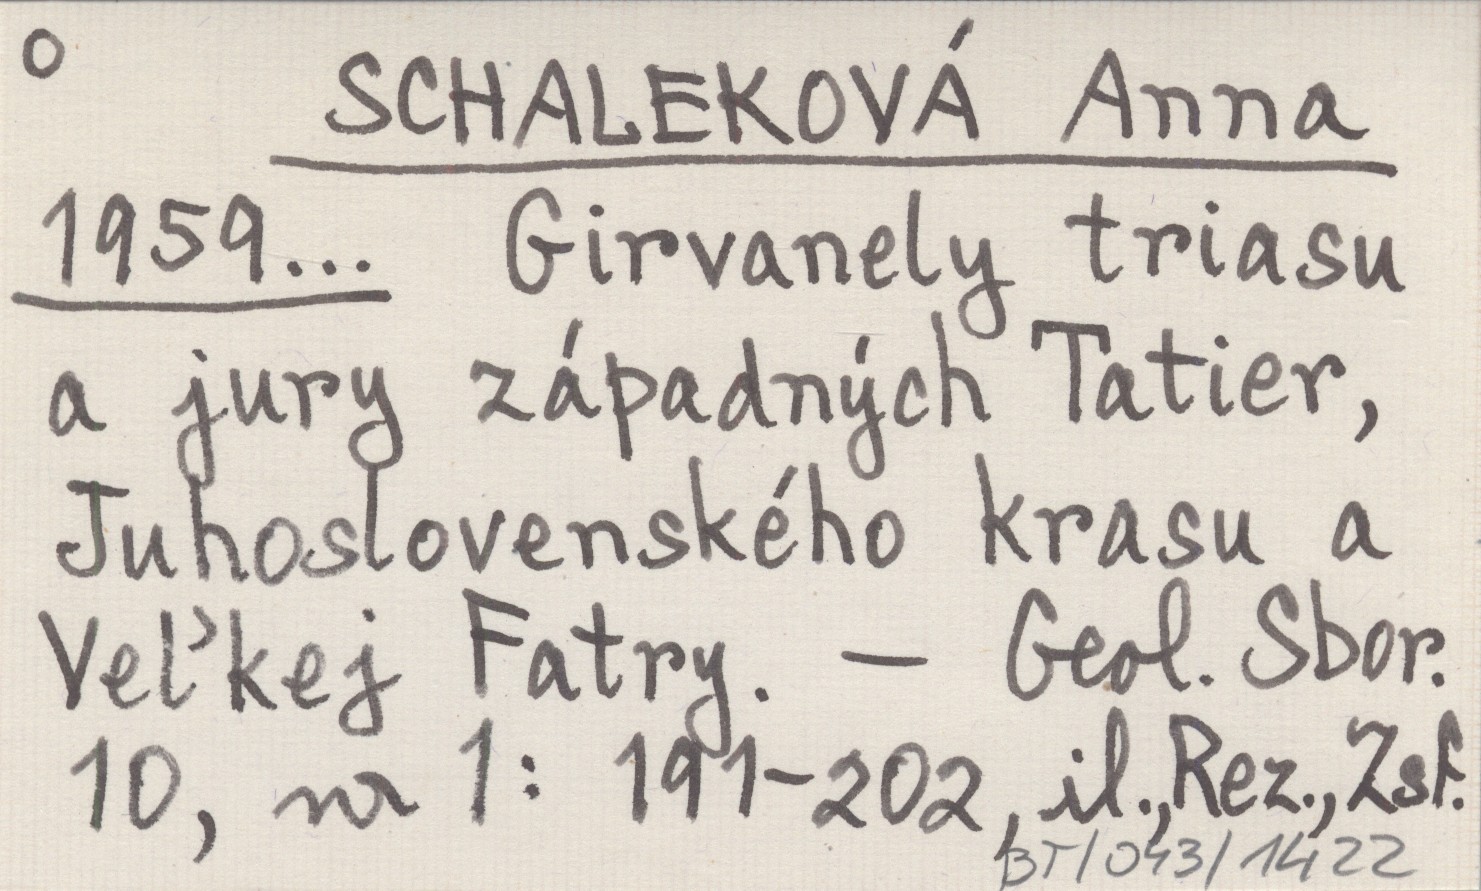 O
SCHALEKOVÁ Anna
1959... Girvanely triasu
a jury západných Tatier,
Juhoslovenského krasu a
Veľkej Fatry. — Geol. Sbor.
10, nr 1: 191-202, il., Rez., Zsf.
BT/043/1422